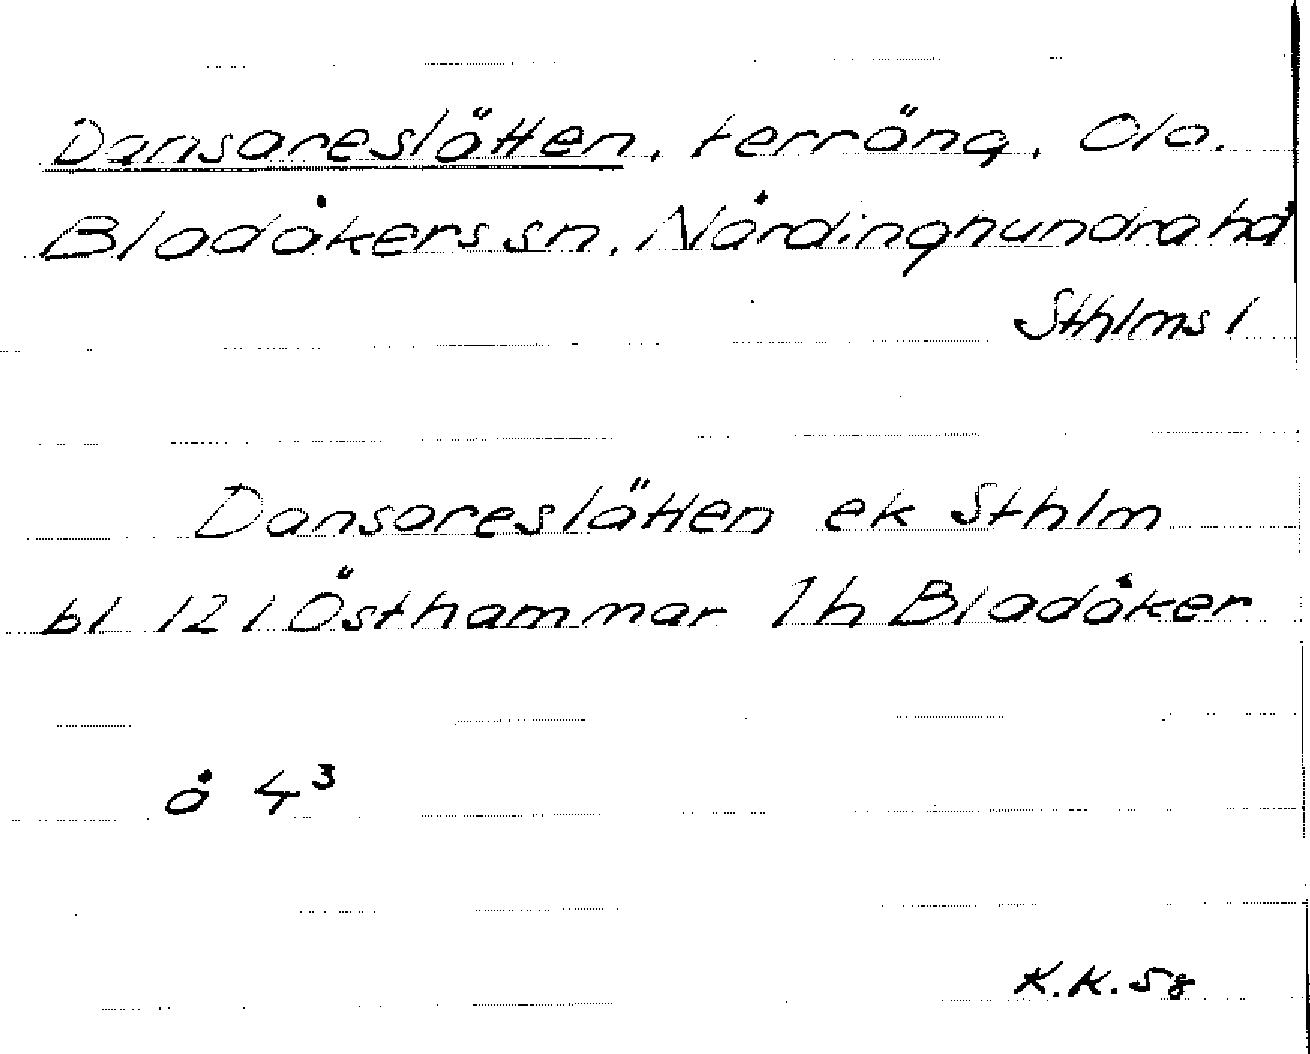 Dansareslätten, terräng, Ola.
Bladåkers sn, Närdinghundra hd
Sthlms l
Dansareslätten ek Sthlm
bl 121 Östhammar 1h Bladåker
å 4³
K.K. 58